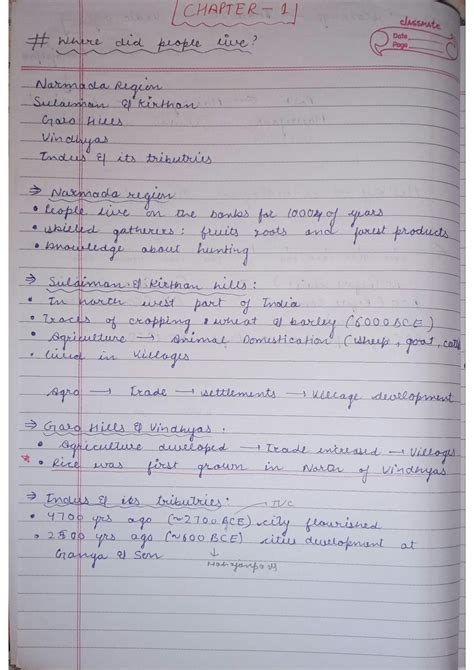 CHAPTER - 1
classmate
Date
Page
# Where did people live?
Narmada Region
Sulaiman & Kirthan
Garo Hills
Vindhyas
Indus & its tributries
⇒ Narmada region
• People live on the banks for 1000s of years
• skilled gatherers: fruits roots and forest products
• knowledge about hunting
⇒ Sulaiman & Kirthan hills:
• In north west part of India
• Traces of cropping: wheat & barley (6000 BCE)
• Agriculture → Animal Domestication (sheep, goat, cattle
• lived in Villages
Agro → Trade → settlements → Village development
⇒ Garo Hills & Vindhyas:
• Agriculture developed → Trade increased → Villages
* • Rice was first grown in North of Vindhyas
⇒ Indus & its tributries:
→ IVC
• 4700 yrs ago (~2700 BCE) city flourished
• 2500 yrs ago (~600 BCE) cities development at
Ganga & Son
↓